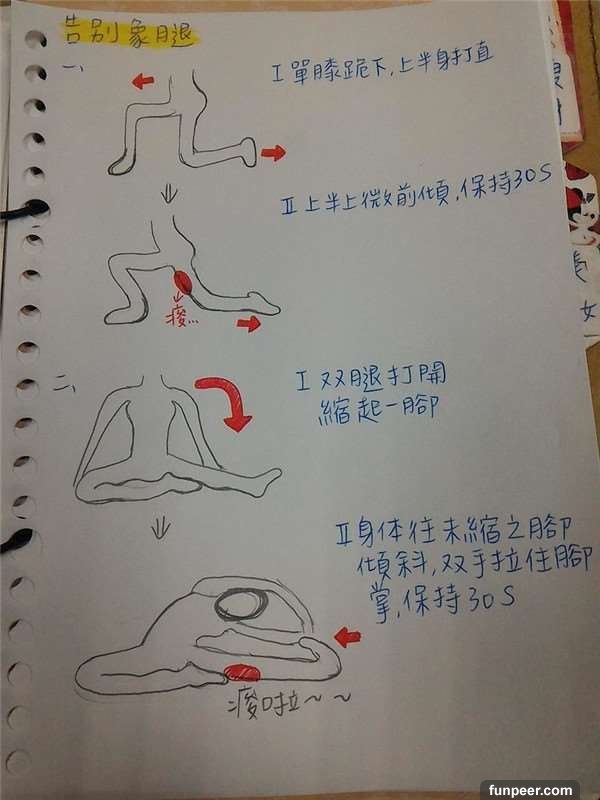 告別象腿
一、
I 單膝跪下,上半身打直
II 上半上微前傾,保持30S
痠...
二、
I 双腿打開
縮起一腳
II 身体往未縮之腳
傾斜,双手拉住腳
掌,保持30S
痠啦~~
女
funpeer.com